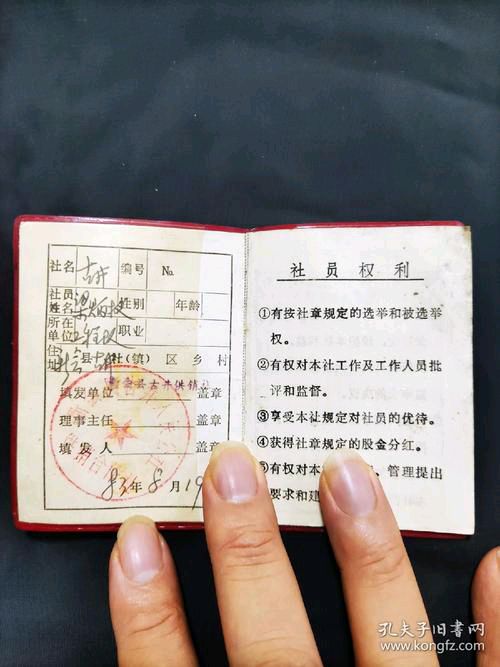 社名 古井 编号 No.
社员姓名 性别 年龄
所在单位 职业
住址 新会县 社(镇) 区 乡 村
填发单位 新会县古井供销社 盖章
理事主任 盖章
填发人 盖章
83年8月19
社员权利
①有按社章规定的选举和被选举
权。
②有权对本社工作及工作人员批
评和监督。
③享受本社规定对社员的优待。
④获得社章规定的股金分红。
⑤有权对本 、管理提出
要求和建
孔夫子旧书网
kongfz.com